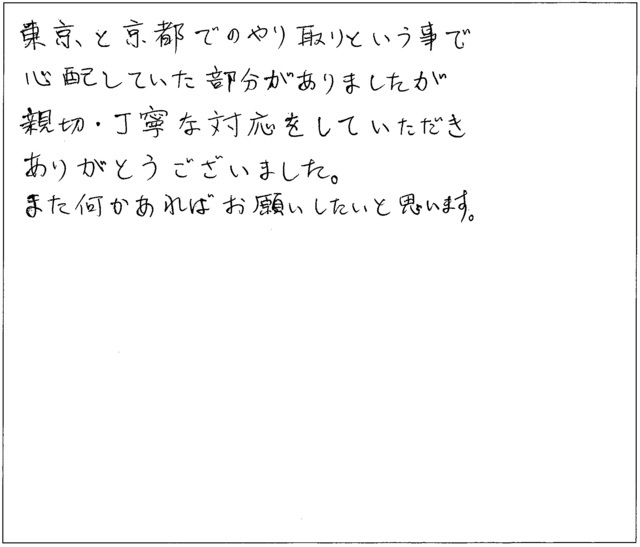 東京、と京都でのやり取りという事で
心配していた部分がありましたが
親切・丁寧な対応をしていただき
ありがとうございました。
また何かあればお願いしたいと思います。